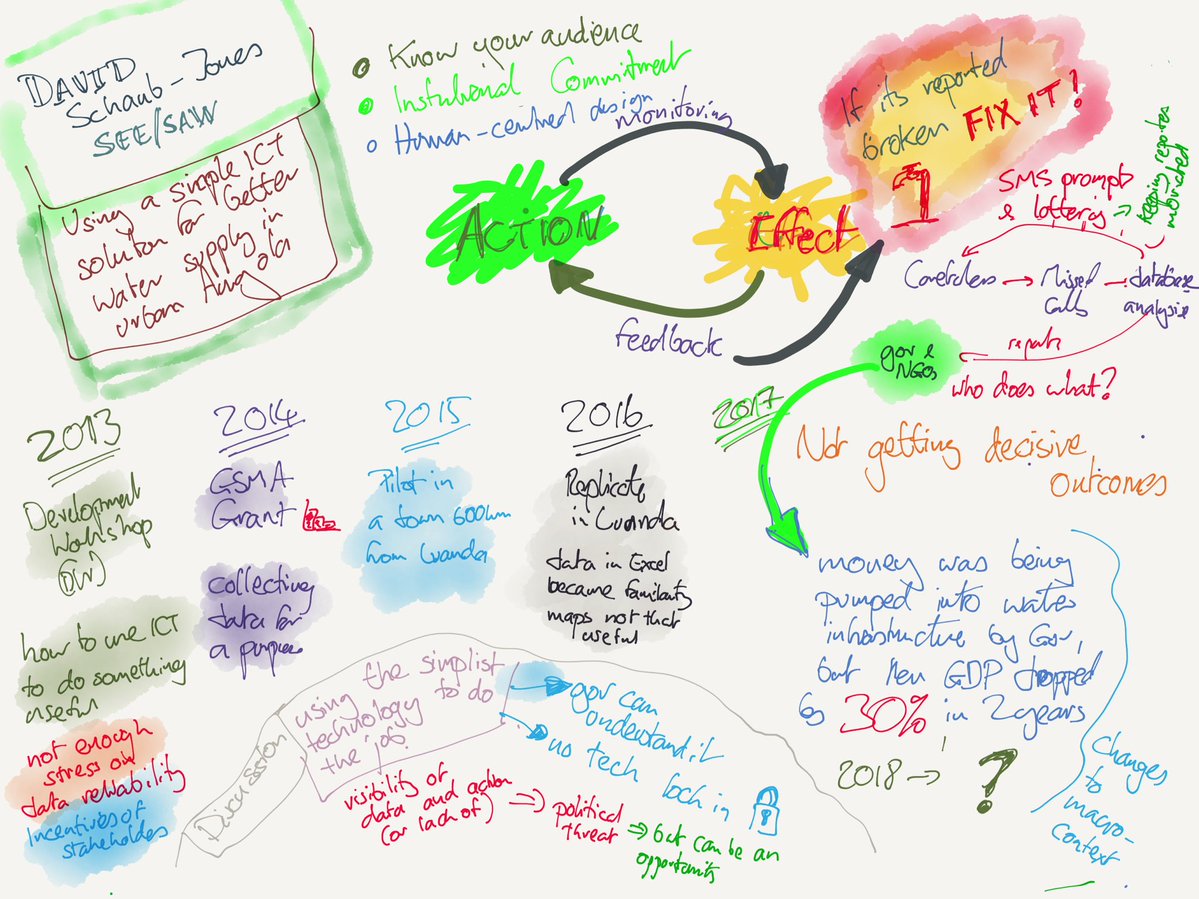 DAVID
Schaub-Jones
SEE/SAW
Using a simple ICT
solution for better
water supply in
urban Angola
Know your audience
Institutional Commitment
Human-centred design
monitoring
ACTION
Effect
feedback
If its reported
broken FIX IT!
1
SMS prompts
& lottering
keeping reporter
motivated
Missed
calls
database
analysis
reports
gov &
NGOs
who does what?
Not getting decisive
outcomes
2013
Development
Workshop
(DW)
how to use ICT
to do something
useful
not enough
stress on
data reliability
Incentives of
stakeholders
2014
GSMA
Grant
collecting
data for
a purpose
2015
Pilot in
a town 600km
from Luanda
2016
Replicate
in Luanda
data in Excel
became familiar
maps not that
useful
2017
money was being
pumped into water
infrastructure by Gov,
but then GDP dropped
by 30% in 2 years
2018 → ?
Changes
to
macro-
context
Discussion
using the simplist
technology to do
the job
gov can
understand it
no tech lock in
visibility of
data and action
(or lack of)
political
threat
but can be an
opportunity